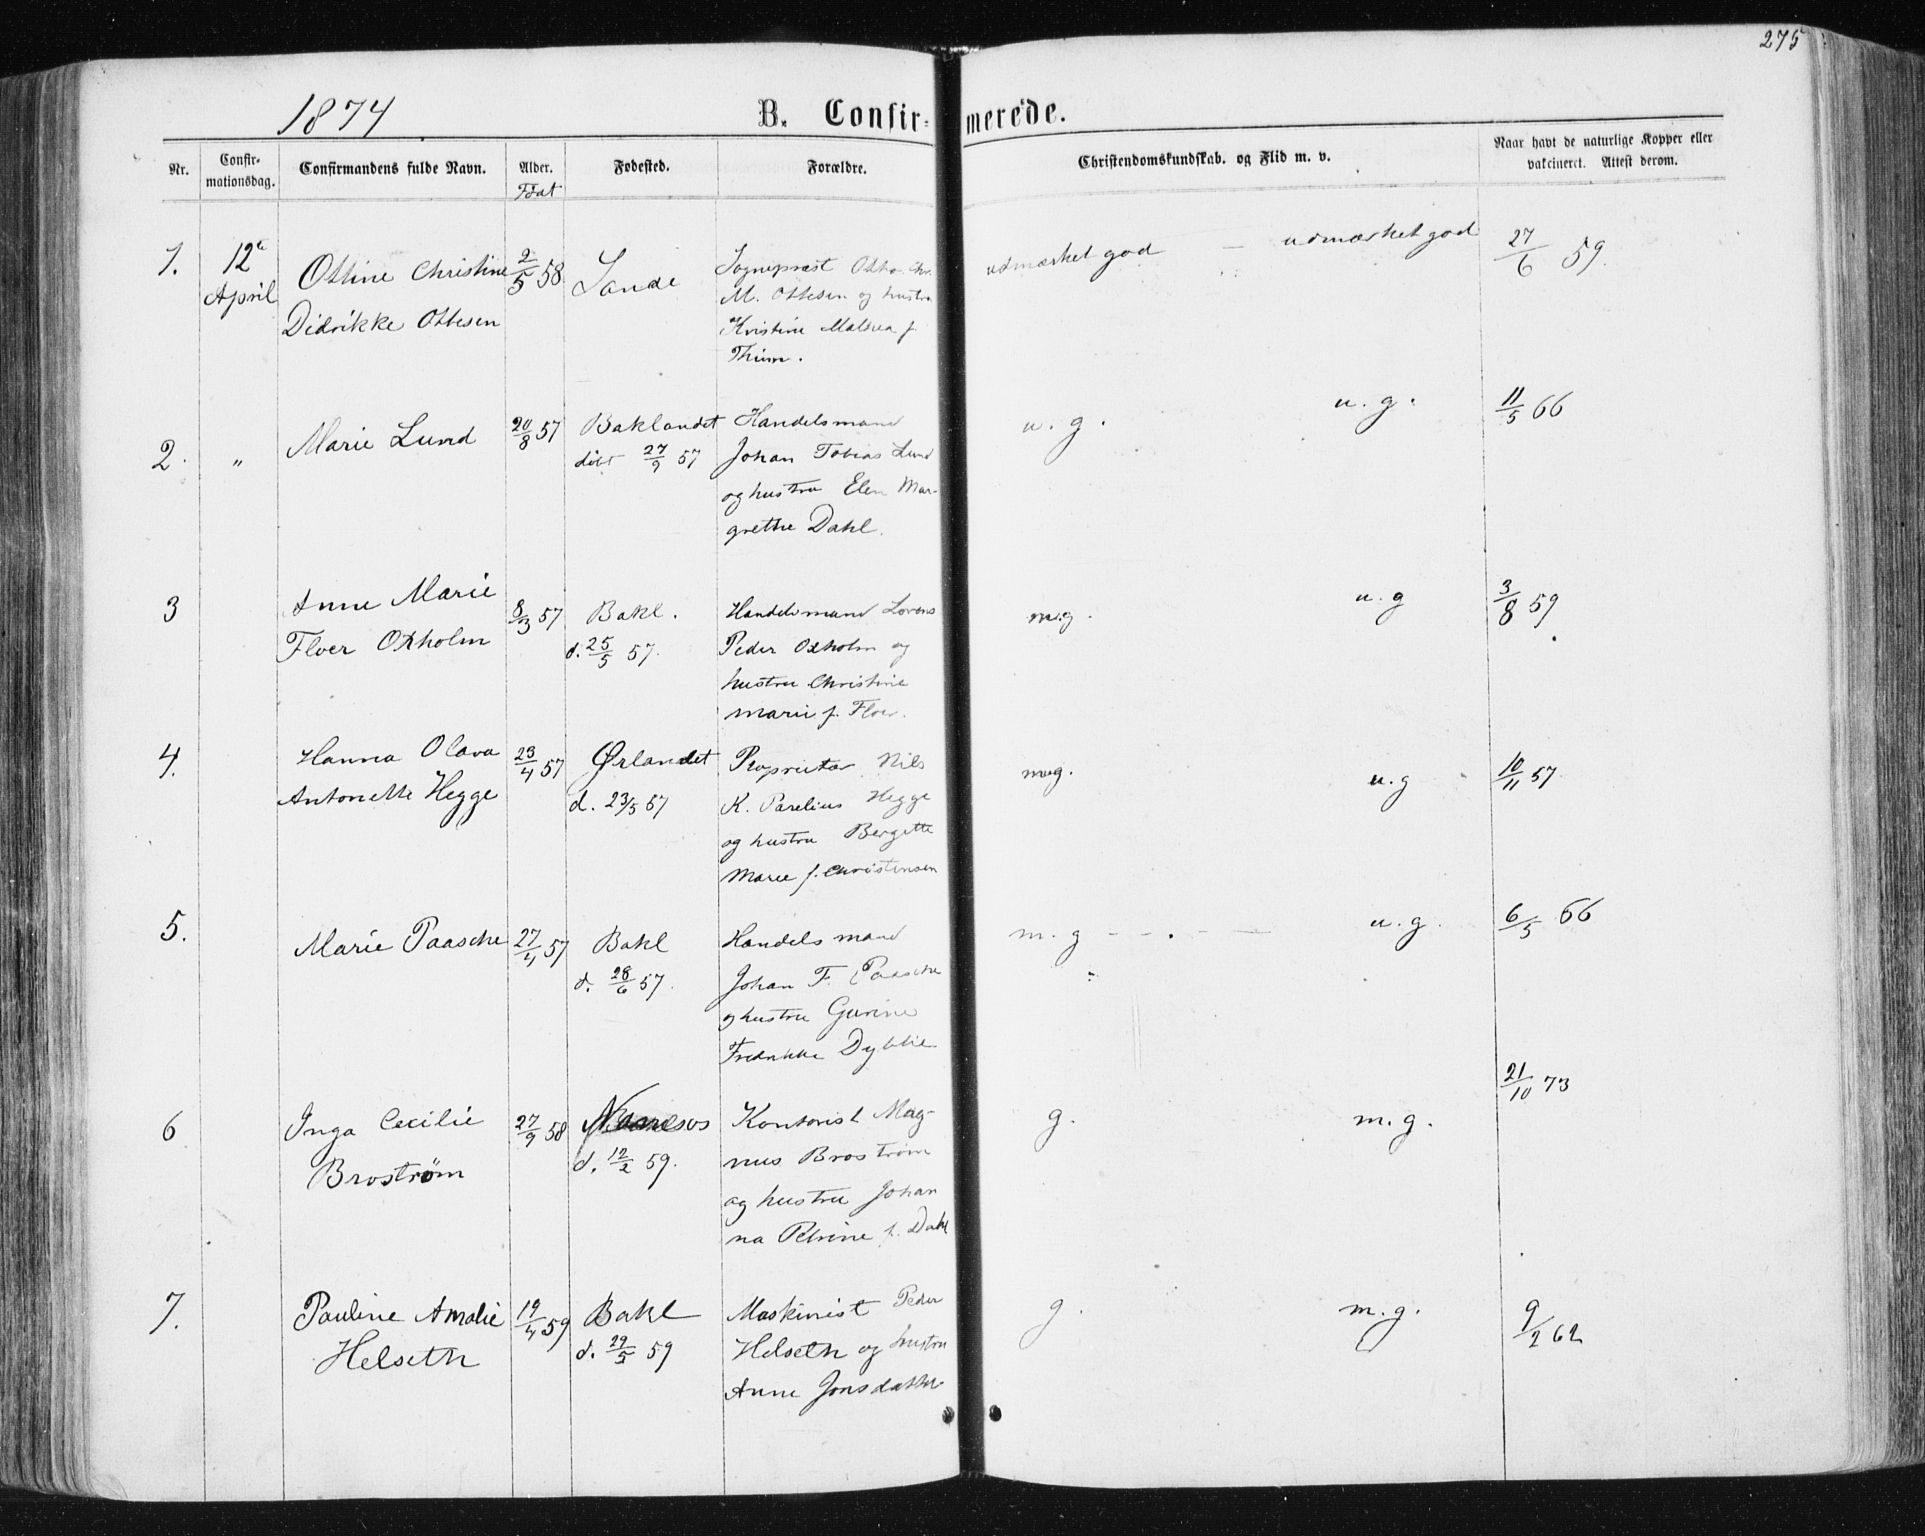 275
1874 B. Confir- merede.
Nr. Confir-mationsdag. Confirmandens fulde Navn. Alder. Fødested. Forældre. Christendomskundskab. og Flid m. v. Naar havt de naturlige Kopper eller vakcineret. Attest derom.
Født
1. 12te April Ottine Christine 2/5 58 Sande Sognepræst Otto Chr. udmærket god — udmærket god 27/6 59.
Didrikke Ottesen M. Ottesen og hustru
Kristine Mathea f.
Thim.
2. „ Marie Lund 20/8 57 Baklandet Handelsmand u. g. u. g. 11/5 66
døbt 27/9 57 Johan Tobias Lund
og hustru Elen Mar-
grethe Dahl.
3 Anne Marie 8/3 57 Bakl. Handelsmand Lorens m.g. u. g 3/8 59
Floer Oxholm d. 25/5 57. Peder Oxholm og
hustru Christine
Marie f. Floer.
4. Hanna Olava 23/4 57 Ørlandet Proprietær Nils m.g. u. g 10/11 57
Antonette Hegge d. 23/5 57 K. Parelius Hegge
og hustru Bergitte
Marie f. Christensen
5. Marie Paasche 27/4 57 Bakl Handelsmand m. g - - . - — u. g. 6/5 66
d. 28/6 57. Johan F. Paasche
og hustru Gurine
Fredrikke Dybbie
21/10 73
6 Inga Cecilie 27/9 58 Namsos Kontorist Mag- g. m. g.
Brostrøm d. 12/2 59. nus Brostrøm
og hustru Johan
na Petrine f. Dahl
7. Pauline Amalie 19/4 59 Bakl Maskinist Peder g. m. g. 9/2 62
Helseth d. 29/5 59 Helseth og hustru
Anne Jonsdatter